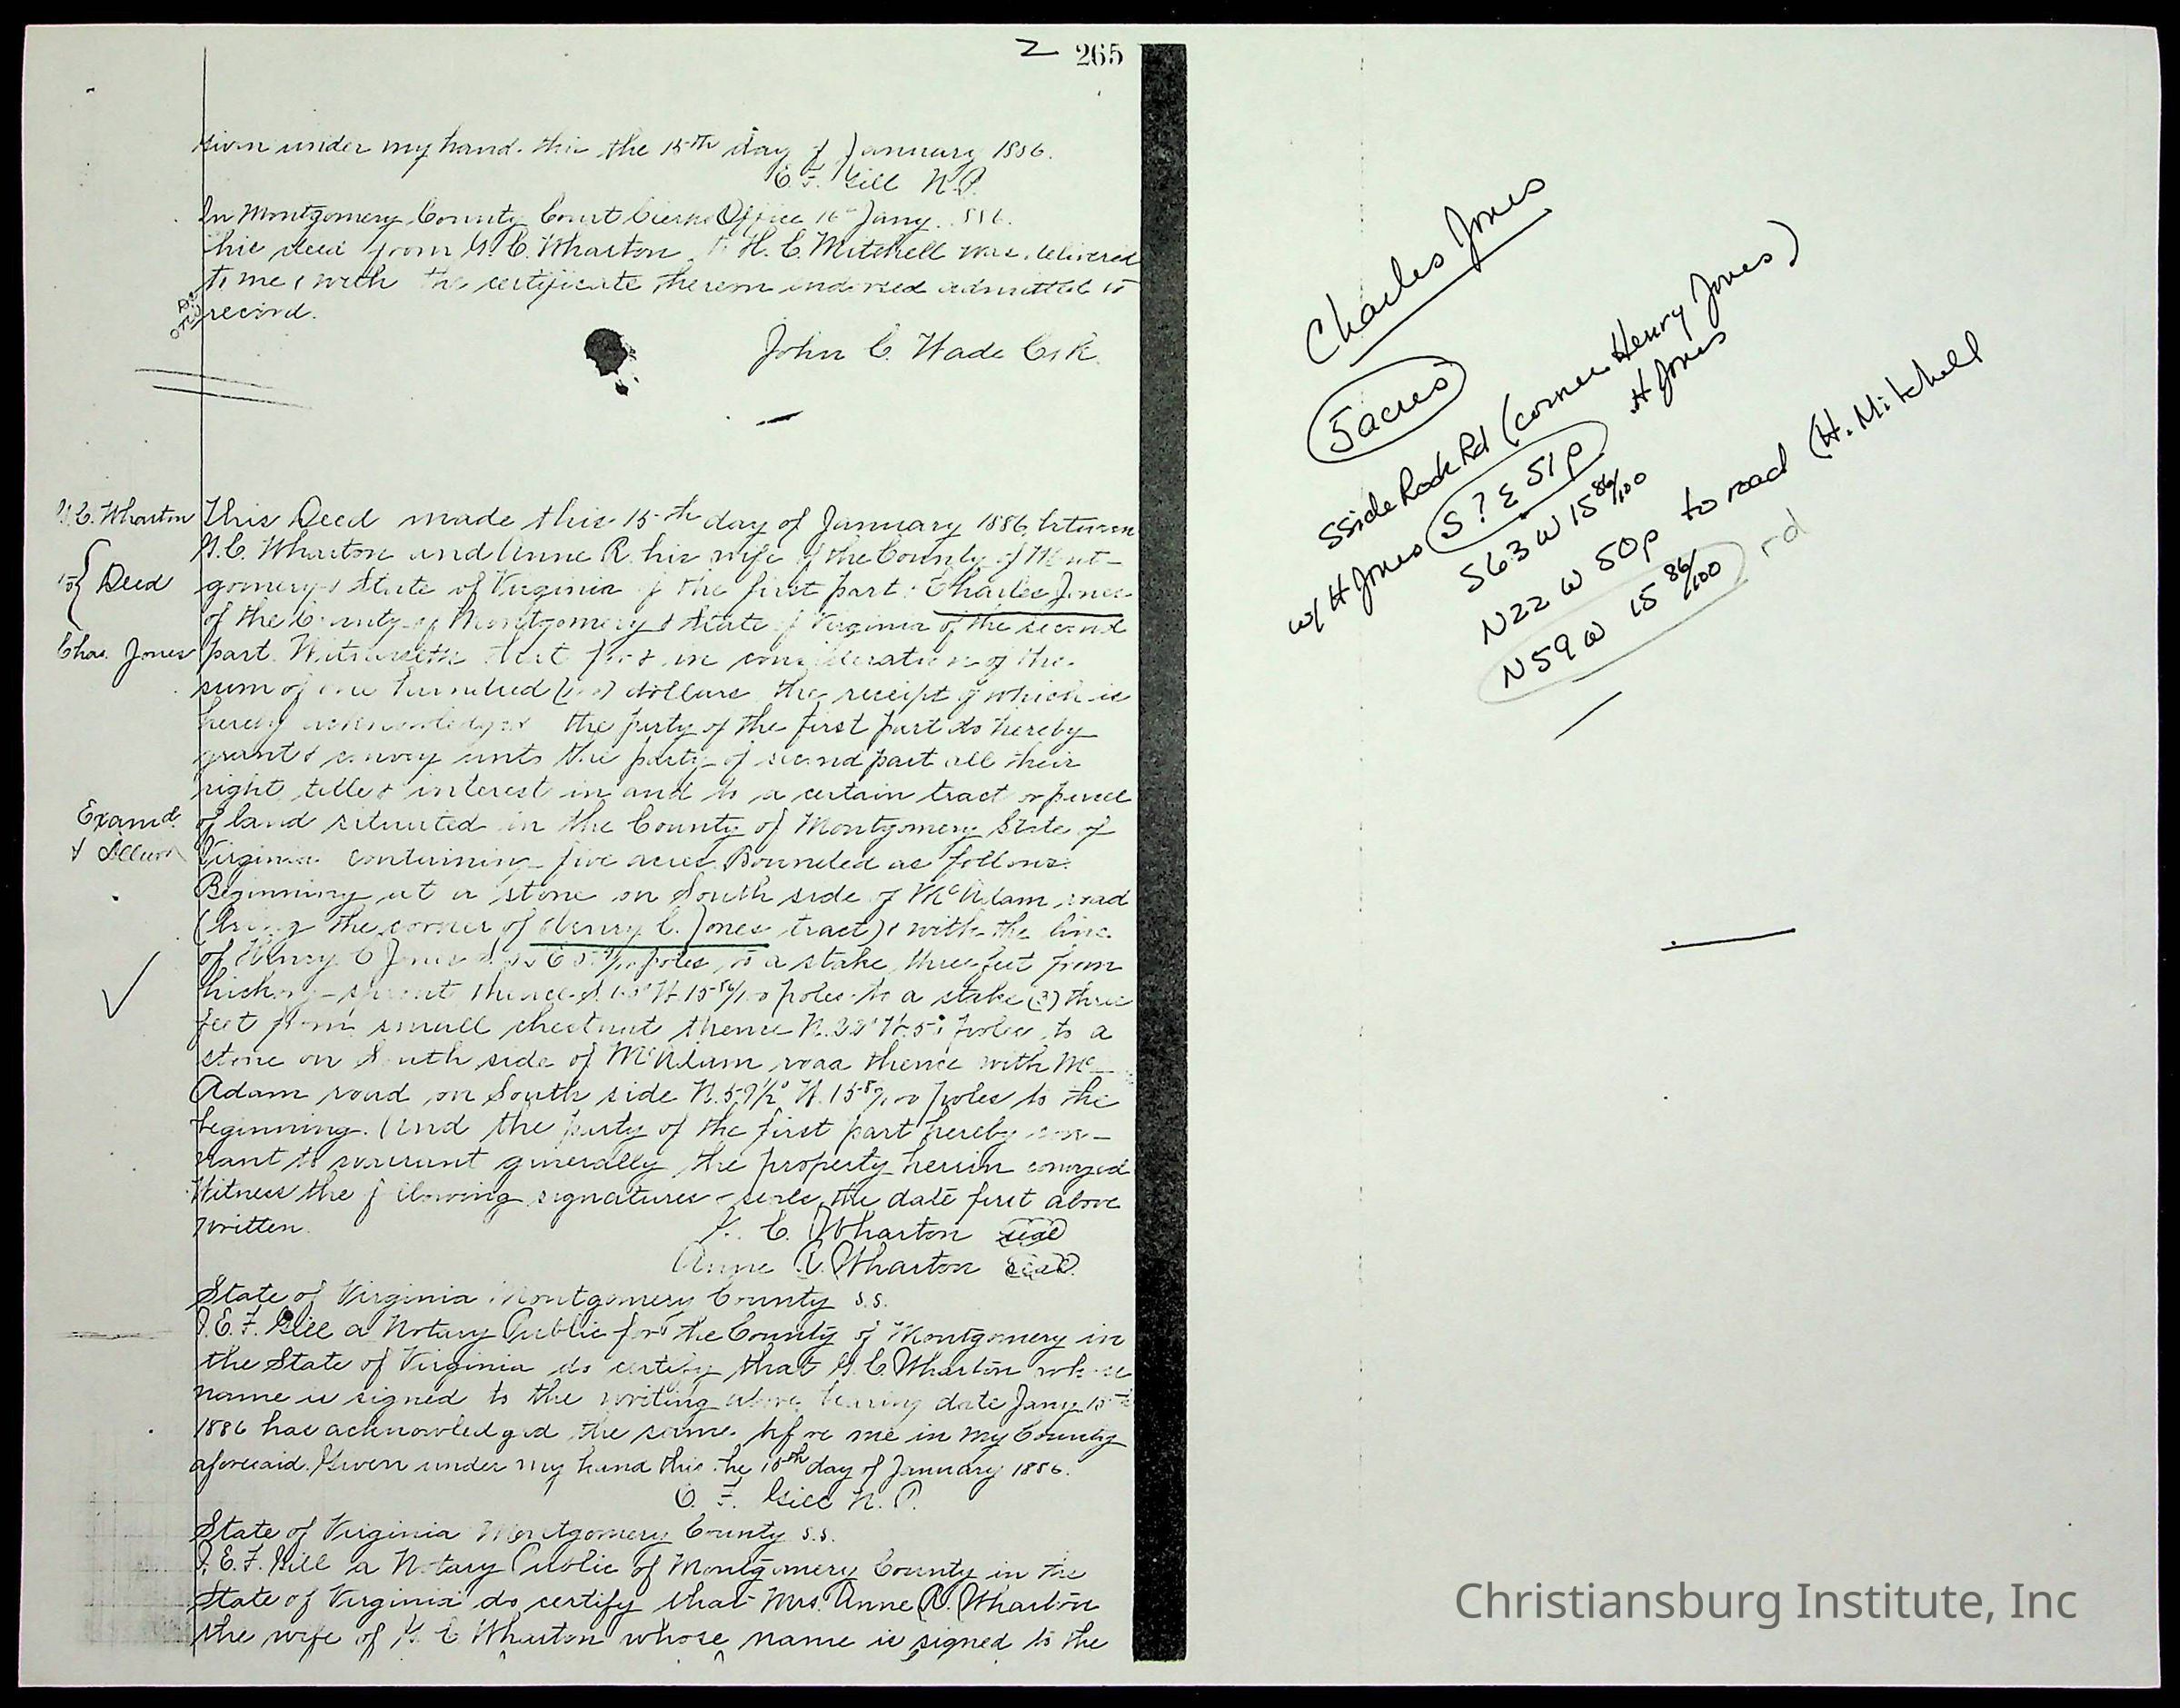 2 265
Given under my hand this the 15th day of January 1886.
E. F. Gill N.P.
In Montgomery County Court Clerks Office 16 Jany. 1886.
This deed from G. C. Wharton to H. C. Mitchell was delivered
to me & with the certificate thereon endorsed admitted to
record.
John C. Wade Clk.
G. C. Wharton
to } Deed
Chas. Jones
This Deed made this 15th day of January 1886 between
G. C. Wharton and Anne R. his wife of the County of Mont-
gomery & State of Virginia of the first part & Charles Jones
of the County of Montgomery & State of Virginia of the second
part. Witnesseth that for & in consideration of the
sum of one hundred (100) dollars the receipt of which is
hereby acknowledged the party of the first part do hereby
grant & convey unto the party of second part all their
right title & interest in and to a certain tract or parcel
Examd. &
of land situated in the County of Montgomery State of
Virginia containing five acres Bounded as follows.
Beginning at a stone on South side of McAdam road
(being the corner of Henry C. Jones tract) & with the line
of Henry C Jones poles to a stake three feet from
hickory sprout thence W 15 86/100 poles to a stake (3) three
feet from small chestnut thence N. 22° W. 50 poles to a
stone on South side of McAdam road thence with Mc-
Adam road on South side N. 59 1/2° W. 15 poles to the
beginning. And the party of the first part hereby cove-
nant to warrant generally the property herein conveyed
Witness the following signatures & seals the date first above
written.
G. C. Wharton seal
Anne R. Wharton seal
State of Virginia Montgomery County s.s.
I. E. F. Gill a Notary Public for the County of Montgomery in
the State of Virginia do certify that G. C. Wharton whose
name is signed to the writing above bearing date Jany 15th
1886 has acknowledged the same before me in my County
aforesaid. Given under my hand this the 15th day of January 1886.
E. F. Gill N. P.
State of Virginia Montgomery County s.s.
I. E. F. Gill a Notary Public of Montgomery County in the
State of Virginia do certify that Mrs. Anne R. Wharton
the wife of G. C Wharton whose name is signed to the
Charles Jones
5 acres
S Side Rock Rd (corner Henry Jones)
w/ H Jones S ? E 51 p H Jones
S 63 W 15 86/100
N 22 W 50 p to road (H. Mitchell
N 59 W 15 86/100 rd
Christiansburg Institute, Inc